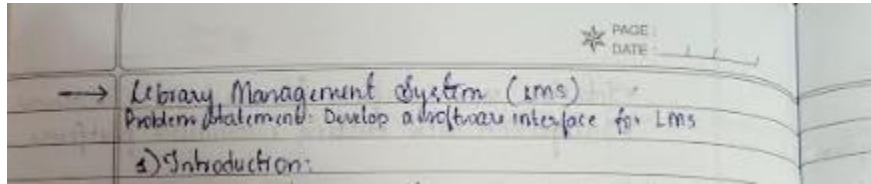 PAGE:
DATE:
→ Library Management System (LMS)
Problem Statement: Develop a software interface for LMS
1) Introduction: